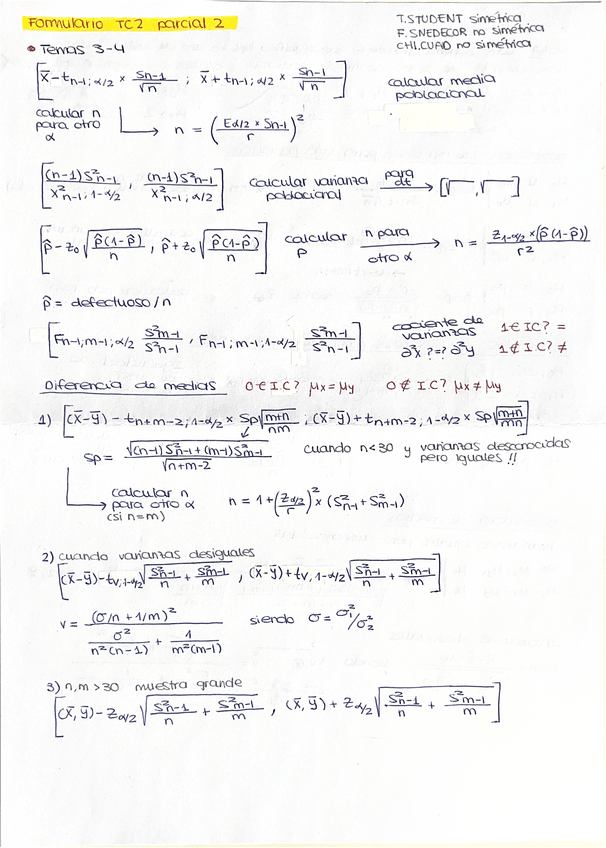 FORMULARIO TC2 parcial 2
T.STUDENT simétrica
F.SNEDECOR no simétrica
CHI.CUAD no simétrica
• Temas 3-4
[x̄ - t n-1; α/2 × Sn-1/√n ; x̄ + t n-1; α/2 × Sn-1/√n] calcular media poblacional
calcular n para otro α → n = (Eα/2 × Sn-1 / r)²
[(n-1)S²n-1 / X²n-1; 1-α/2 , (n-1)S²n-1 / X²n-1; α/2] calcular varianza poblacional para dt → [√ , √ ]
[p̂ - z₀ √(p̂(1-p̂)/n) , p̂ + z₀ √(p̂(1-p̂)/n)] calcular p n para otro α → n = z1-α/2 × (p̂(1-p̂)) / r²
p̂ = defectuoso / n
[Fn-1; m-1; α/2 S²m-1/S²n-1 , Fn-1; m-1; 1-α/2 S²m-1/S²n-1] cociente de varianzas ∂²x ?=? ∂²y
1 ∈ IC? =
1 ∉ I.C? ≠
Diferencia de medias 0 ∈ I.C? μx = μy 0 ∉ I.C? μx ≠ μy
1) [(x̄-ȳ) - t n+m-2; 1-α/2 × Sp √(m+n/nm) ; (x̄-ȳ) + t n+m-2, 1-α/2 × Sp √(m+n/mn)]
Sp = √((n-1)S²n-1 + (m-1)S²m-1) / √(n+m-2) cuando n<30 y varianzas desconocidas pero iguales !!
calcular n para otro α (si n=m) → n = 1 + (Zα/2 / r)² × (S²n-1 + S²m-1)
2) cuando varianzas desiguales
[(x̄-ȳ) - t v, 1-α/2 √(S²n-1/n + S²m-1/m) , (x̄-ȳ) + t v, 1-α/2 √(S²n-1/n + S²m-1/m)]
v = (σ/n + 1/m)² / (σ²/n²(n-1) + 1/m²(m-1)) siendo σ = σ₁²/σ₂²
3) n,m >30 muestra grande
[(x̄,ȳ) - Zα/2 √(S²n-1/n + S²m-1/m) , (x̄,ȳ) + Zα/2 √(S²n-1/n + S²m-1/m)]